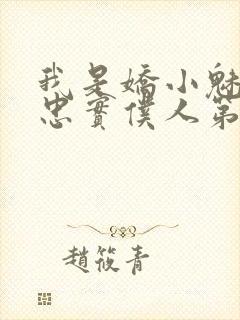 我是嬌小魅
忠實僕人第
趙筱青